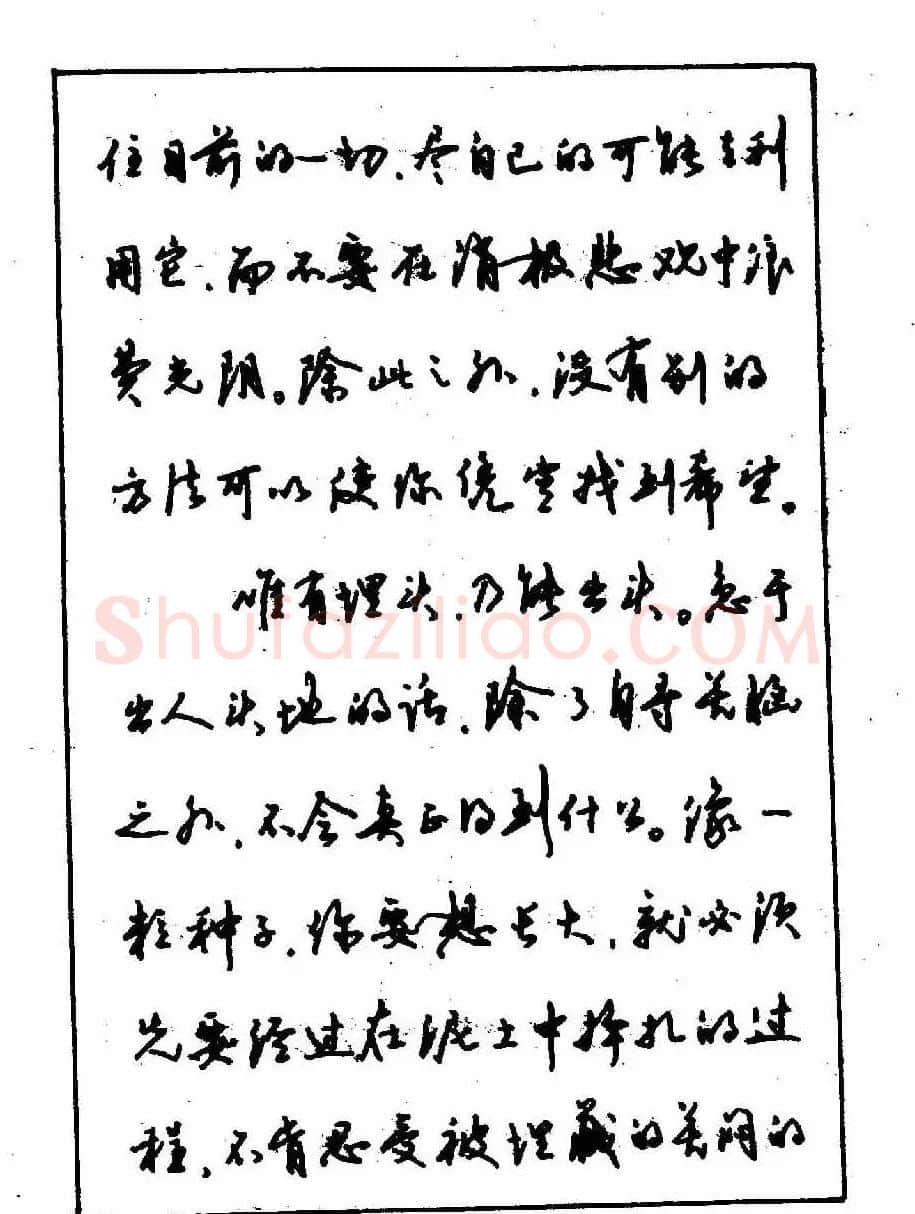 住目前的一切,尽自己的可能去利
用它,而不要在消极悲观中浪
费光阴。除此之外,没有别的
方法可以使你凭空找到希望。
唯有埋头,乃能出头。急于
出人头地的话,除了自寻苦恼
之外,不会真正得到什么。像一
粒种子,你要想长大,就必须
先要经过在泥土中挣扎的过
程,不肯忍受被埋藏的苦闷的
Shufaziliao.COM